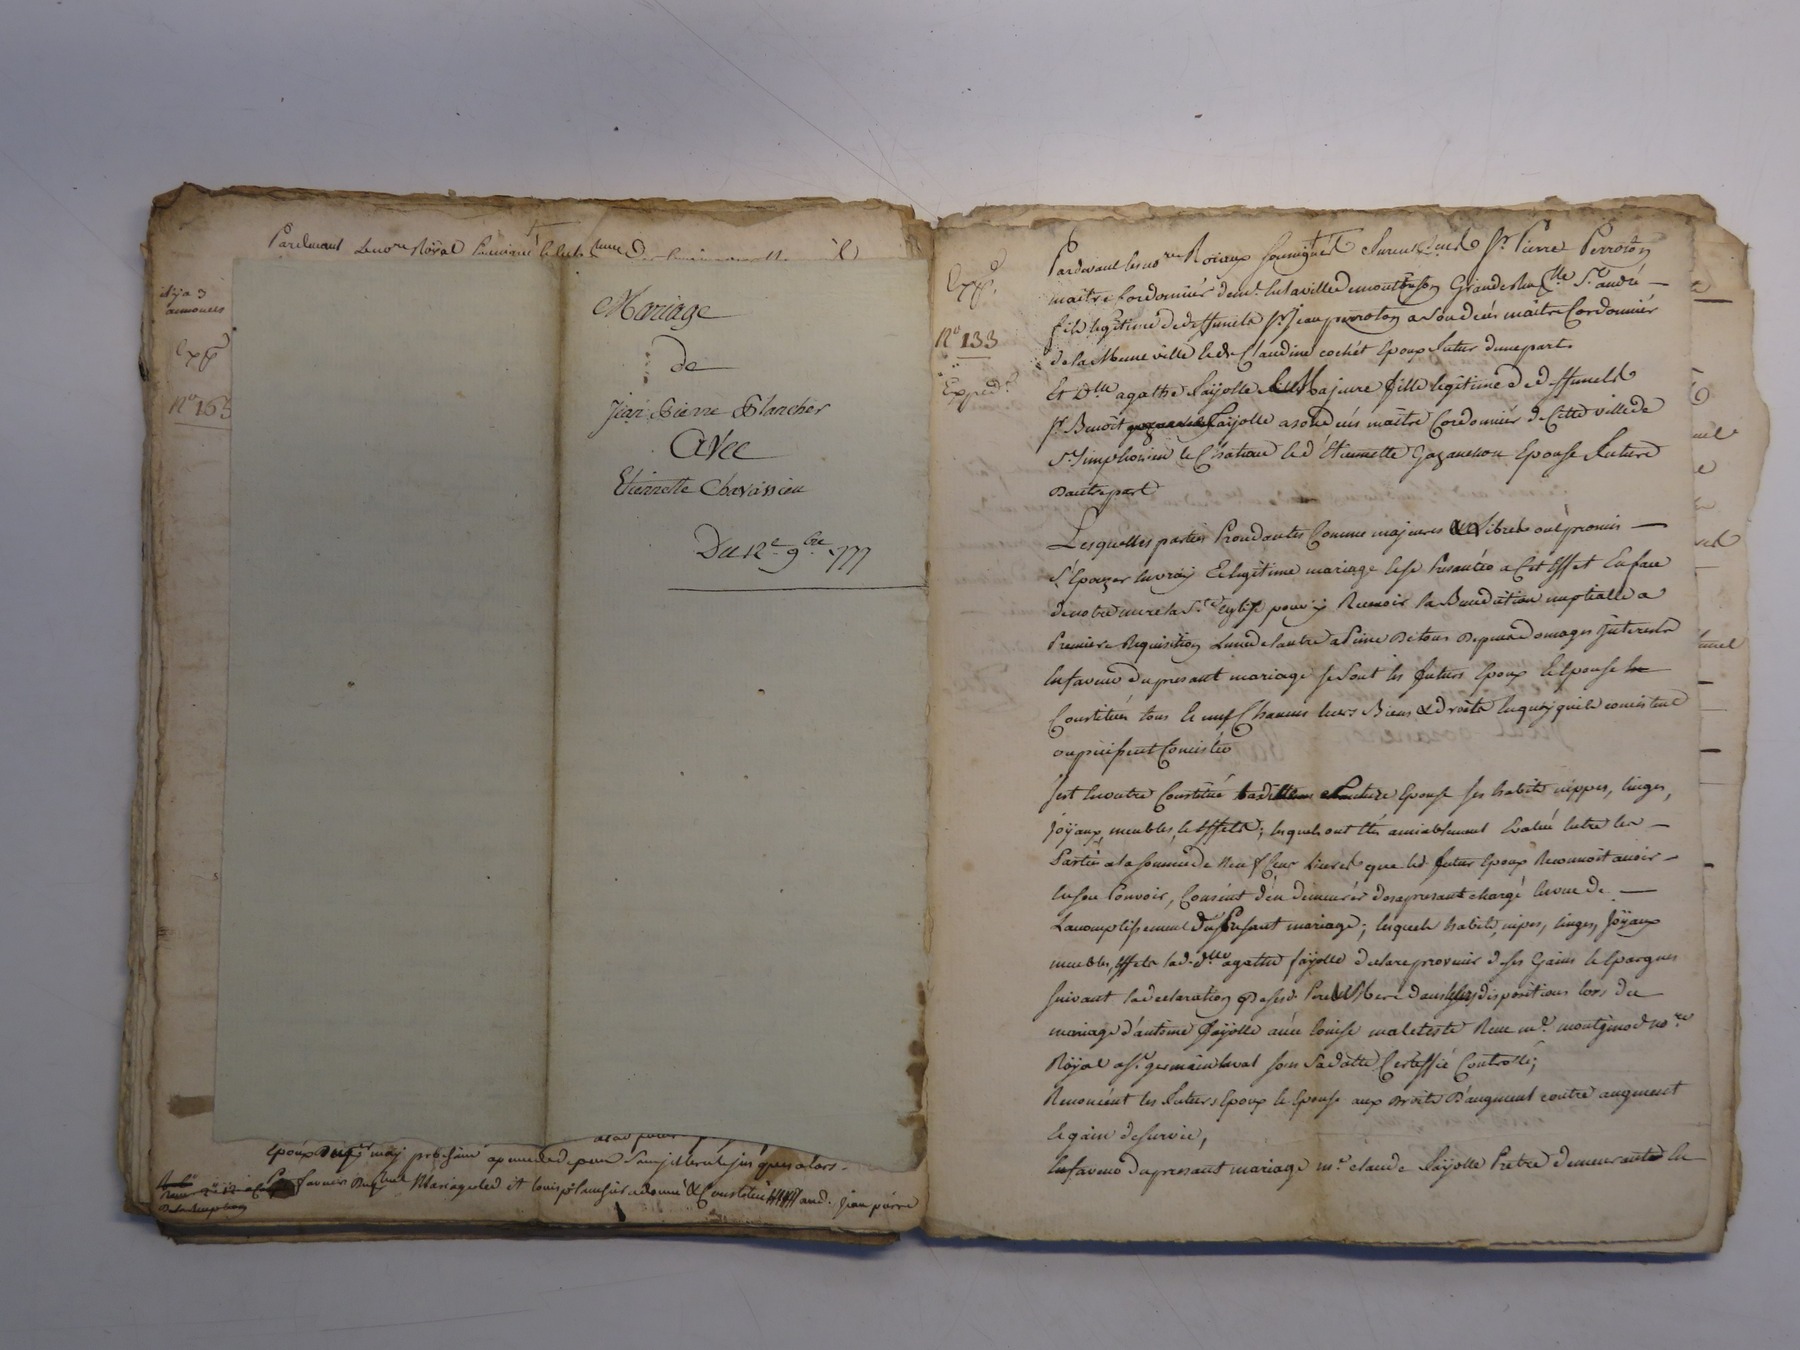 Pardevant le no.re Royal
il y a 3
annonces
Exp.é
N.o 163
Mariage
de
Jean Pierre Plancher
Avec
Etiennette Chavassieu
Du 12.e 9.bre 1777
epoux may prochain
mariage led. et constitué aud. Jean pierre
Exp.é
N.o 133
Exped.
Pardevant les no.res Roiaux soussignés furent S.r Pierre Perroton
maitre Cordonnier dem.t en la ville de montbrison Grande rue S.t andré
fils legitime de deffunct S.r Jean perroton a son deces maitre Cordonnier
de la Meme ville et de Claudine cochet Epoux futur d'une part
Et D.lle agathe faijolle fille Majeure fille legitime de deffunct
S.r Benoit faijolle a son deces maitre Cordonnier de Cette ville de
S.t simphorien le Chateau et d'Etiennette Gazanchon Epouse future
D'autre part
Lesquelles parties Procedantes Comme majeures & Libres ont promis
S'Epouzer en vray & legitime mariage et se Presenter a Cet Effet En face
de notre mere la S.te Eglise pour y Recevoir la Benediction nuptialle a
Premiere Requisition L'une de l'autre a Peine De tous Depens domages Interests
En faveur du present mariage se sont les futurs Epoux et Epouse
Constitués tous et un Chacuns leurs Biens & droits En quoy qu'ils concistent
ou puissent Concister
S'est En outre Constitué future Epouse ses habits nippes, linges,
Joÿaux, meubles, et Effets; lesquels ont été amiablement Evalués Entre les
Parties a la somme de Neuf Cent Livres que led. futur Epoux Reconnoit avoir
En son Pouvoir, Consent d'en demeurer des apresent chargé En vue de
L'acomplissement du Present mariage; lesquels habits, nipes, linges, Joÿaux
meubles, Effets lad. d.lle agathe faijolle declare provenir de ses Gains et Epargnes
suivant la declaration de ses Pere & Mere dans les dispositions lors du
mariage d'antoine faijolle avec Louise maleteste Recu m.e montgnod no.re
Röyal a S.t germain laval sous sa datte Certiffié Controllé;
Renoncent les futurs Epoux et Epouse aux Droits D'augment contre augment
et gain de survie,
En faveur du present mariage m.re claude faijolle Pretre demeurant En